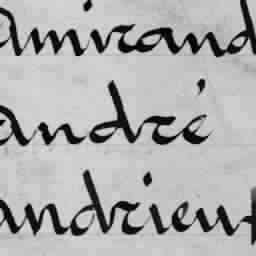 amirand
andré
andrieu